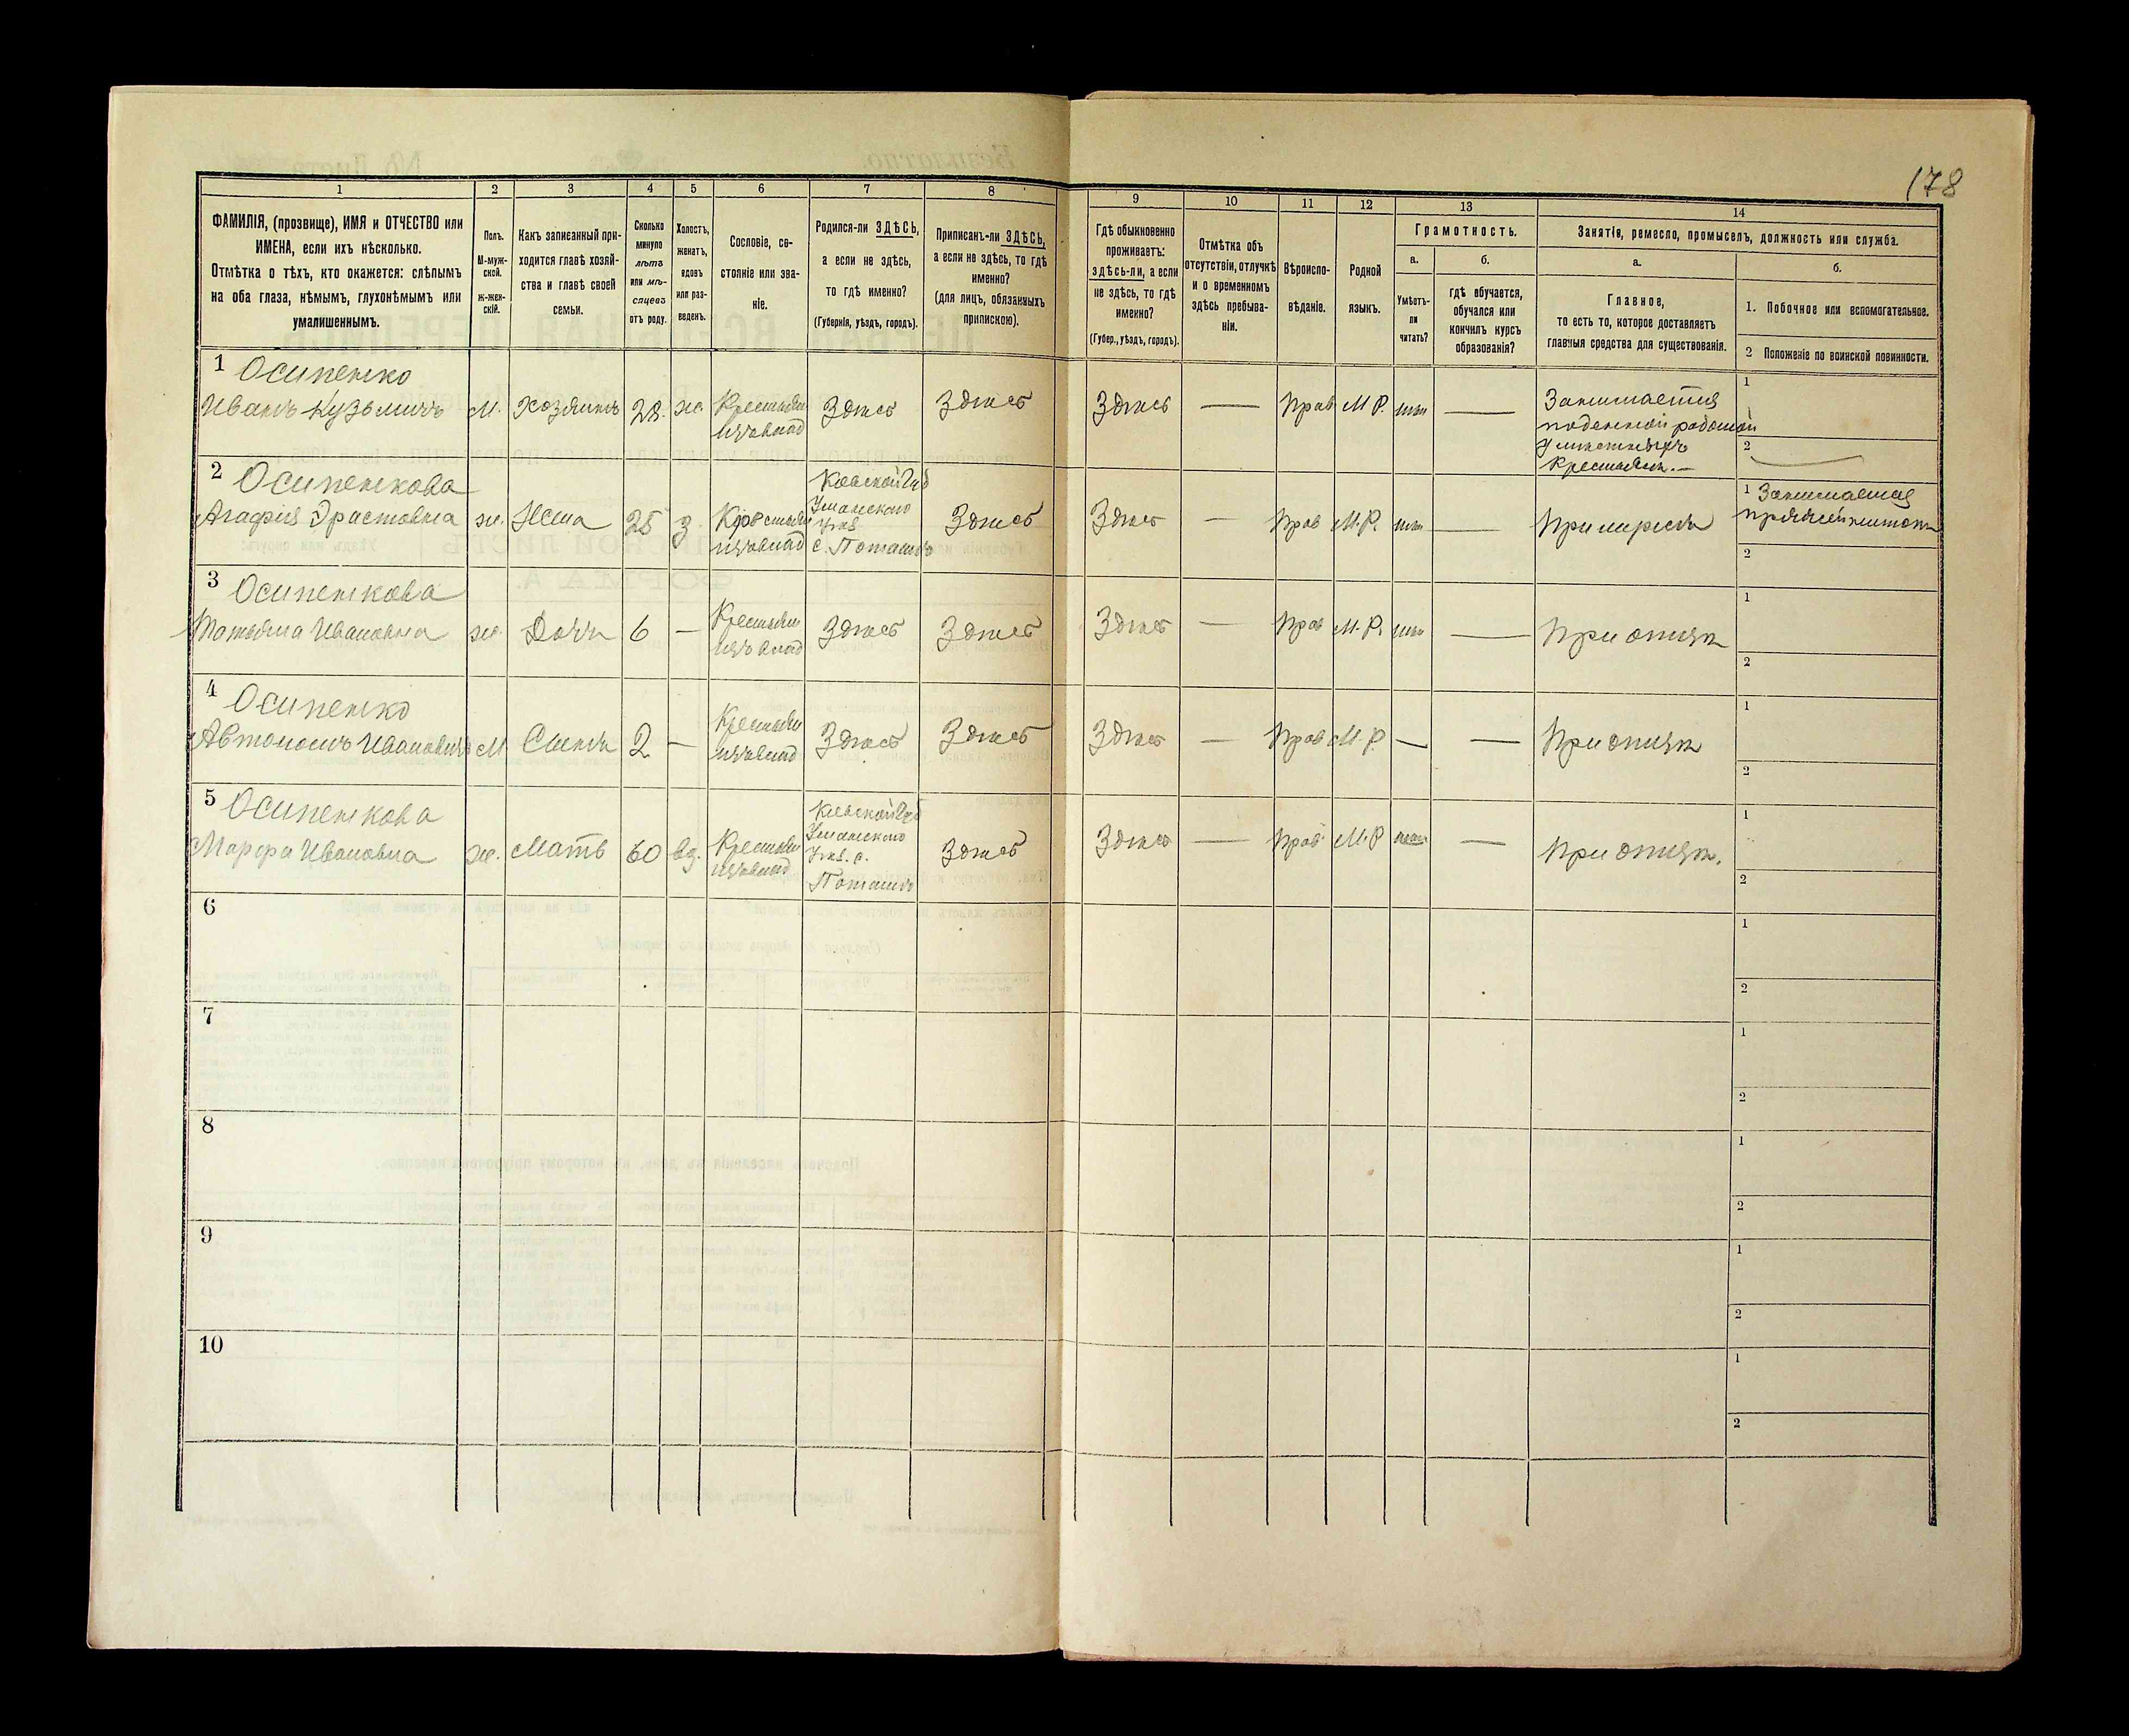 178
1 2 3 4 5 6 7 8 9 10 11 12 13 14
ФАМИЛІЯ, (прозвище), ИМЯ и ОТЧЕСТВО или
ИМЕНА, если ихъ нѣсколько.
Отмѣтка о тѣхъ, кто окажется: слѣпымъ
на оба глаза, нѣмымъ, глухонѣмымъ или
умалишеннымъ.
Полъ.
М-муж-
ской.
ж-жен-
скій.
Какъ записанный при-
ходится главѣ хозяй-
ства и главѣ своей
семьи.
Сколько
минуло
лѣтъ
или мѣ-
сяцевъ
отъ роду.
Холостъ,
женатъ,
вдовъ
или раз-
веденъ.
Сословіе, со-
стояніе или зва-
ніе.
Родился-ли ЗДѢСЬ,
а если не здѣсь,
то гдѣ именно?
(Губернія, уѣздъ, городъ).
Приписанъ-ли ЗДѢСЬ,
а если не здѣсь, то гдѣ
именно?
(для лицъ, обязанныхъ
припискою).
Гдѣ обыкновенно
проживаетъ:
здѣсь-ли, а если
не здѣсь, то гдѣ
именно?
(Губер., уѣздъ, городъ).
Отмѣтка объ
отсутствіи, отлучкѣ
и о временномъ
здѣсь пребыва-
ніи.
Вѣроиспо-
вѣданіе.
Родной
языкъ.
Грамотность.
а.
Умѣетъ-
ли
читать?
б.
гдѣ обучается,
обучался или
кончилъ курсъ
образованія?
Занятія, ремесло, промыселъ, должность или служба.
а.
Главное,
то есть то, которое доставляетъ
главныя средства для существованія.
б.
1. Побочное или вспомогательное.
2 Положеніе по воинской повинности.
1 Осипенко
Иванъ Кузьмичъ М. Хозяинъ 28. ж. Крестьян
изъ влад Здѣсь Здѣсь Здѣсь — Прав М Р. нѣт —
Занимается
поденной работой
у мѣстныхъ
крестьян. —
1
2 —
2 Осипенкова
Агафия Эрастовна ж. Жена 25 З. Крестьян
изъ влад
Киевской Губ
Уманского
Уѣз
с. Поташъ
Здѣсь Здѣсь — Прав М. Р. нѣт — При мужѣ
1 Занимается
пряжей нитокъ
2
3 Осипенкова
Татьяна Ивановна ж. Дочь 6 — Крестьян
изъ влад Здѣсь Здѣсь Здѣсь — Прав М. Р. нѣт — При отцѣ
1
2
4 Осипенко
Автономъ Ивановичъ М Сынъ 2 — Крестьян
изъ влад Здѣсь Здѣсь Здѣсь — Прав М. Р. — — При отцѣ
1
2
5 Осипенкова
Марфа Ивановна ж. Мать 60 вд. Крестьян
изъ влад
Киевской Губ
Уманского
Уѣз. с.
Поташъ
Здѣсь Здѣсь — Прав М. Р — При отцѣ.
1
2
6
1
2
7
1
2
8
1
2
9
1
2
10
1
2